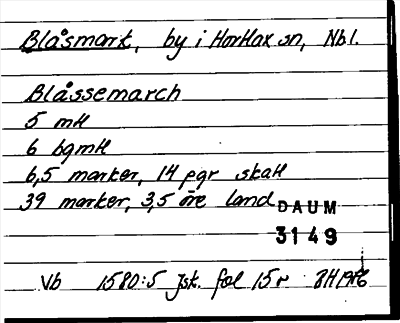 Blåsmark, by i Hortlax sn, Nbl.
Blåssemarch
5 mtl
6 bgmtl
6,5 marker, 14 pgr skatt
39 marker, 3,5 öre land
DAUM
3149
Vb 1580:5 Jsk. fol 15r BH 1986